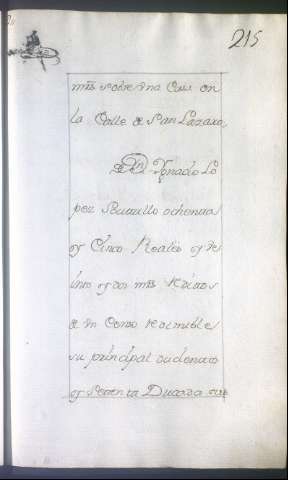 215
mrs sobre vna Casa en
la Calle de San Lazaro,
De Dn Ygnacio Lo
pez Seuuillo ochenta
y Cinco Reales y ve
inte y dos mrs Reditos
de vn Censo Redimible
su principal ducientos
y Setenta Ducados